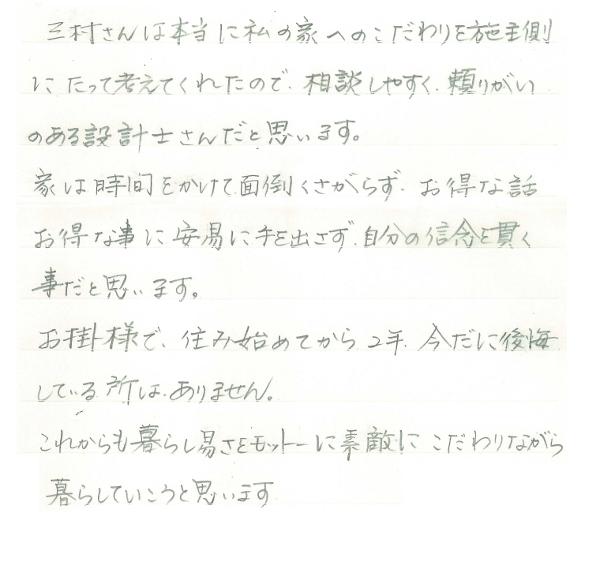 三村さんは本当に私の家へのこだわりを施主側
にたって考えてくれたので、相談しやすく、頼りがい
のある設計士さんだと思います。
家は時間をかけて面倒くさがらず、お得な話
お得な事に安易に手を出さず、自分の信念を貫く
事だと思います。
お掛様で、住み始めてから2年、今だに後悔
している所は、ありません。
これからも暮らし易さをモットーに素敵にこだわりながら
暮らしていこうと思います